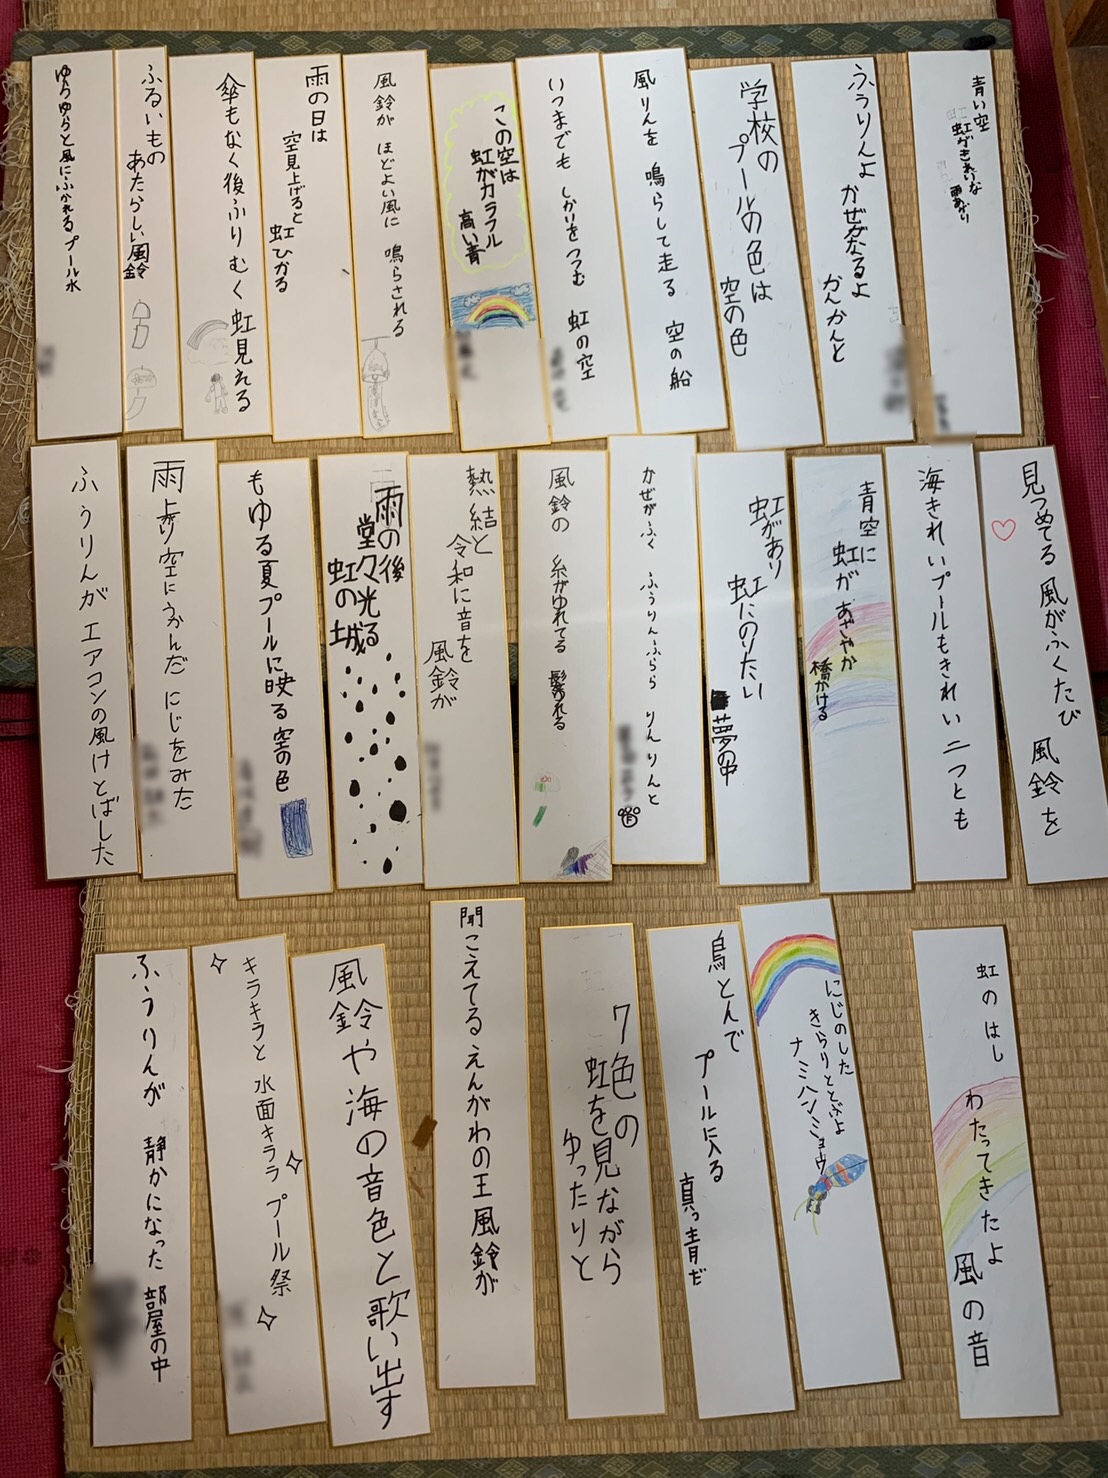 青い空
虹がきれいな
雨あがり
ふうりんよ
かぜがなるよ
かんかんと
学校の
プールの色は
空の色
風りんを 鳴らして走る 空の船
いつまでも しかりをつつむ 虹の空
この空は
虹がカラフル
高い青
風鈴が ほどよい風に 鳴らされる
雨の日は
空見上げると
虹ひかる
傘もなく後ふりむく虹見える
ふるいもの
あたらしい風鈴
ゆらゆらと風にふかれるプール水
見つめてる 風がふくたび 風鈴を
海きれいプールもきれい二つとも
青空に
虹が あざやか
橋かける
虹があり
虹にのりたい
夢の中
かぜがふく ふうりんふらら りんりんと
風鈴の 糸がゆれてる 髪ゆれる
熱結と
令和に音を
風鈴が
雨の後
堂々光る
虹の城
もゆる夏プールに映る空の色
雨上がり空にうかんだ にじをみた
ふうりんが エアコンの風けとばした
虹のはし わたってきたよ 風の音
にじのした
きらりととぶよ
ナミハンミョウ
鳥とんで
プールに入る
真っ青だ
7色の
虹を見ながら
ゆったりと
聞こえてるえんがわの王風鈴が
風鈴や海の音色と歌い出す
キラキラと 水面キララ プール祭
ふうりんが 静かになった 部屋の中